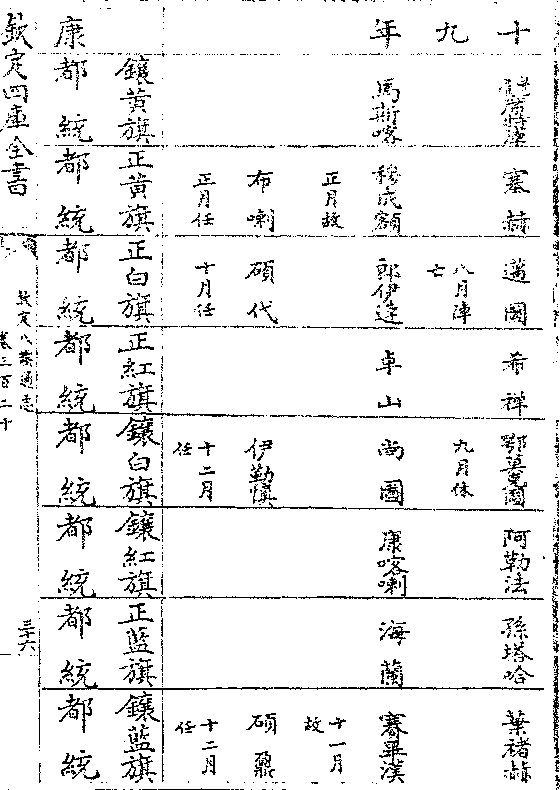 十 塞赫 邁圖 希禅 阿勒法 孫塔哈 葉褚赫
九 八月陣亡 九月休
年 馬斯喀 穆成額 郎伊達 卓山 尚圖 康喀喇 海蘭
正月故 十一月故
布喇 碩代 伊勒慎 碩鼐
正月任 十月任 十二月任 十二月任
鑲黃旗 正黃旗 正白旗 正紅旗 鑲白旗 鑲紅旗 正藍旗 鑲藍旗
康 都統 都統 都統 都統 都統 都統 都統 都統
欽定四庫全書
欽定八旗通志
卷三百二十
三十六